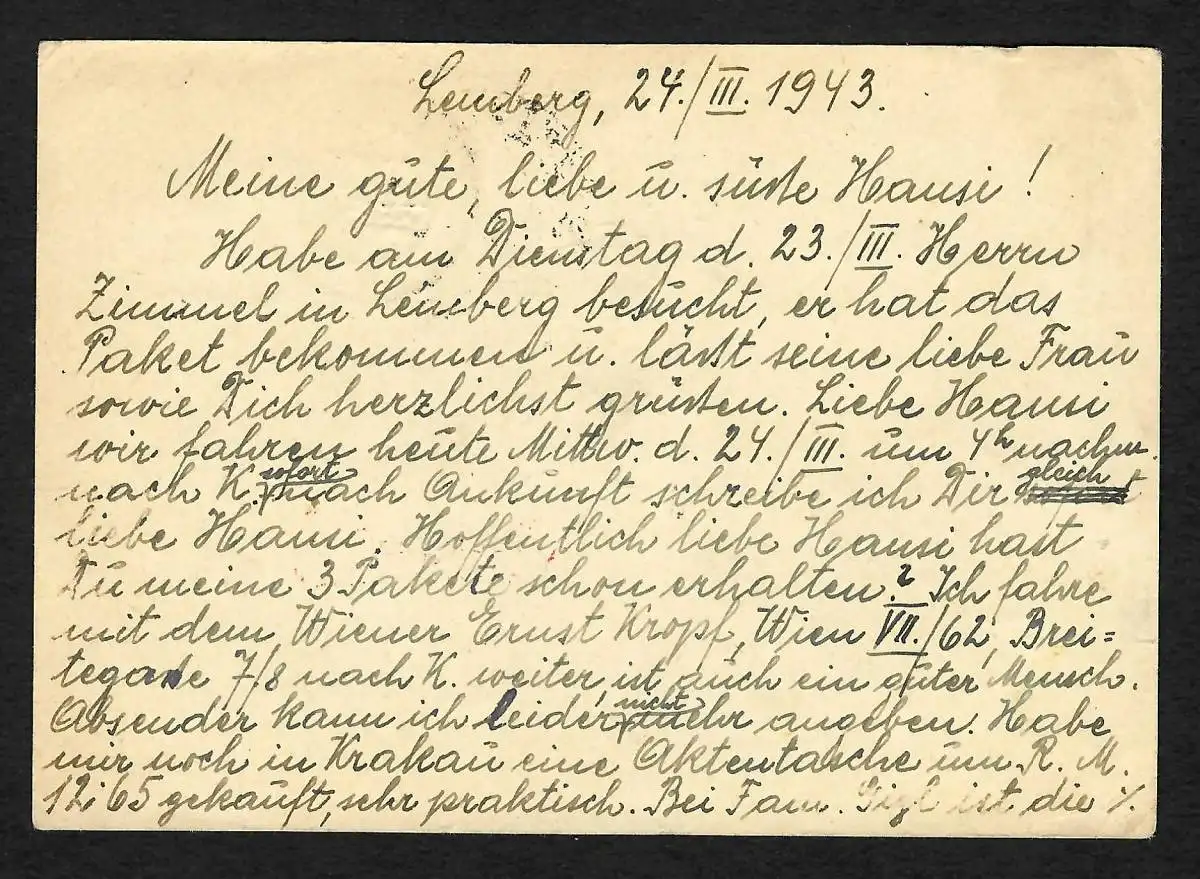 Lemberg, 24./III. 1943.
Meine gute, liebe u. süße Hansi!
Habe am Dienstag d. 23./III. Herrn
Zimmel in Lemberg besucht, er hat das
Paket bekommen u. läßt seine liebe Frau
sowie Dich herzlichst grüßen. Liebe Hansi
wir fahren heute Mittw. d. 24./III. um 4h nachm.
nach K. sofort nach Ankunft schreibe ich Dir gleich
liebe Hansi. Hoffentlich liebe Hansi hast
Du meine 3 Pakete schon erhalten? Ich fahre
mit dem Wiener Ernst Kropf, Wien VII./62, Brei=
tegasse 7/8 nach K. weiter, ist auch ein guter Mensch.
Absender kann ich leider nicht mehr angeben. Habe
mir noch in Krakau eine Aktentasche um R. M.
12,65 gekauft, sehr praktisch. Bei Fam. ist die ./.